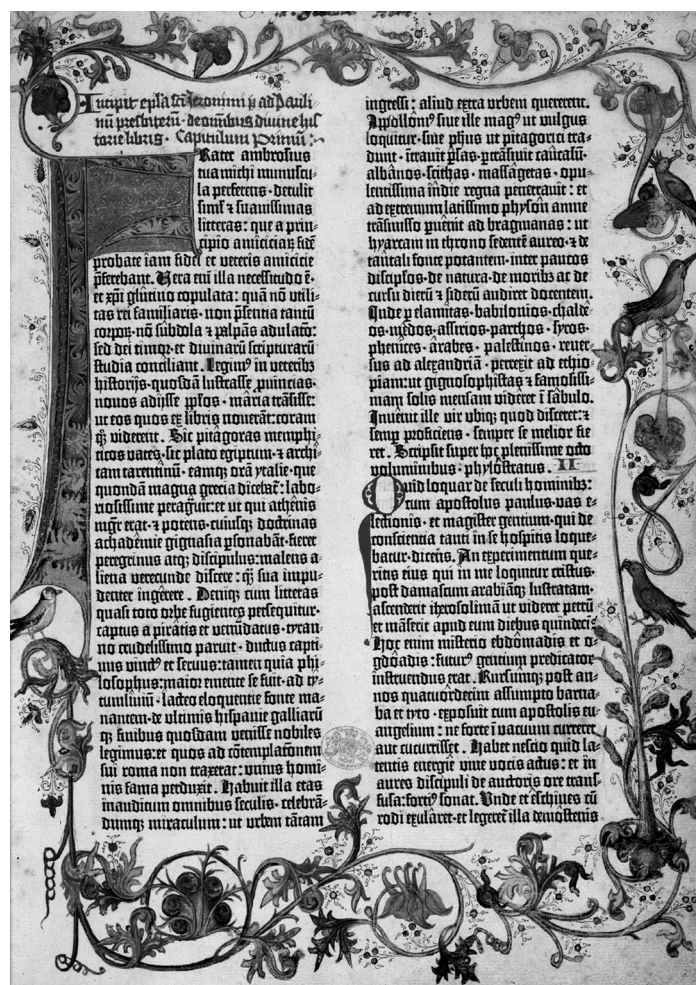 Incipit epl'a sc̄i Jeronimi p̄ ad Pauli
nū presbiterū · de om̄ibus diuine his
torie libris · Capitulum Primū :
Frater ambrosius
tua michi munuscu⸗
la perferens · detulit
simł ꝛ suauissimas
litteras : que a prin⸗
cipio amiciciaꝝ · fidē
probate iam fidei et veteris amicicie
p̄ferebant. Uera em̄ illa necessitudo ē ·
et xp̄i glutino copulata : quā nō vtili⸗
tas rei familiaris · non p̄sentia tantū
corpoꝝ · nō subdola ꝛ palpās adulat̄o :
sed dei timor · et diuinarū scripturarū
studia conciliant. Legim⁹ in veterib⁊
historijs · quosdā lustrasse ꝓuincias ·
nouos adijsse pp̄los · maria trāsisse :
ut eos quos ex libris nouerāt : coram
qꝫ viderent. Sic pitagoras memphi⸗
ticos vates · sic plato egiptum · ꝛ archi⸗
tam tarentinū · eamqꝫ orā ytalie · que
quondā magna grecia diceba̅t : labo⸗
riosissime peragrauit : et ut qui athenis
mgr̄ erat · ꝛ potens · cuiusqꝫ doctrinas
achademie gignasia ꝑsonabāt · fieret
peregrinus atqꝫ discipulus : malens a⸗
liena verecunde discere : qꝫ sua impu⸗
denter ingerere. Deniqꝫ cum litteras
quasi toto orbe fugientes persequitur ·
captus a piratis et venūdatus · tyran⸗
no crudelissimo paruit · ductus capti⸗
uus vinct⁹ et seruus : tamen quia phi⸗
losophus : maior emente se fuit · ad ty⸗
tumliuiū · lacteo eloquentie fonte ma⸗
nantem · de vltimis hispanie galliarū
qꝫ finibus quosdam venisse nobiles
legimus : et quos ad cōtemplationem
sui roma non traxerat : unius homi⸗
nis fama perduxit. Habuit illa etas
inauditum omnibus seculis · celebrā⸗
dumqꝫ miraculum : ut urbem tātam
ingressi : aliud extra urbem quererent.
Appolloni⁹ siue ille mag⁹ ut vulgus
loquitur · siue ph̄us · ut pitagorici tra⸗
dunt · ītrauit p̄sas · ꝑtrāsiuit caucasū ·
albanos · scithas · massagetas · opu⸗
lentissima indie regna penetrauit : et
ad extremum latissimo physon amne
trāsmisso ꝑuenit ad bragmanas : ut
hyarcam in throno sedentē aureo · ꝛ de
tantali fonte potantem · inter paucos
discipl'os · de natura · de morib⁊ ac de
cursu dierū ꝛ siderū audiret docentem.
Inde ꝑ elamitas · babilonios · chalde⸗
os · medos · assirios · parthos · syros ·
phenices · arabes · palestinos · reuer⸗
sus ad alexandriā · perrexit ad ethio⸗
piam : ut gignosophistas ꝛ famosissi⸗
mam solis mensam videret ī sabulo.
Inuenit ille vir vbiqꝫ quod disceret : ꝛ
semp̱ proficiens · semper se melior fie⸗
ret. Scripsit super hoc plenissime octo
voluminibus · phylostratus. II
Quid loquar de seculi hominib⁊ :
cum apostolus paulus · vas e⸗
lectionis · et magister gentium · qui de
conscientia tanti in se hospitis loque⸗
batur · dicens. An experimentum que⸗
ritis eius qui in me loquitur cristus ·
post damascum arabiāqꝫ lustratam ·
ascenderit iherosolimā ut videret petrū
et māserit apud eum diebus quindeci :
Hoc enim misterio ebdōmadis et o⸗
gdōadis : futur⁹ gentium predicator
instruendus erat. Rursumqꝫ post an⸗
nos quatuordecim assumpto barna⸗
ba et tyto · exposuit cum apostolis eu⸗
angelium : ne forte ī vacuum curreret
aut cucurrisset. Habet nescio quid la⸗
tentis energie viue vocis actus : et in
aures discipuli de auctoris ore trans⸗
fusa : forti⁹ sonat. Unde et eschines cū
rodi exularet · et legeret̄ illa demostenis